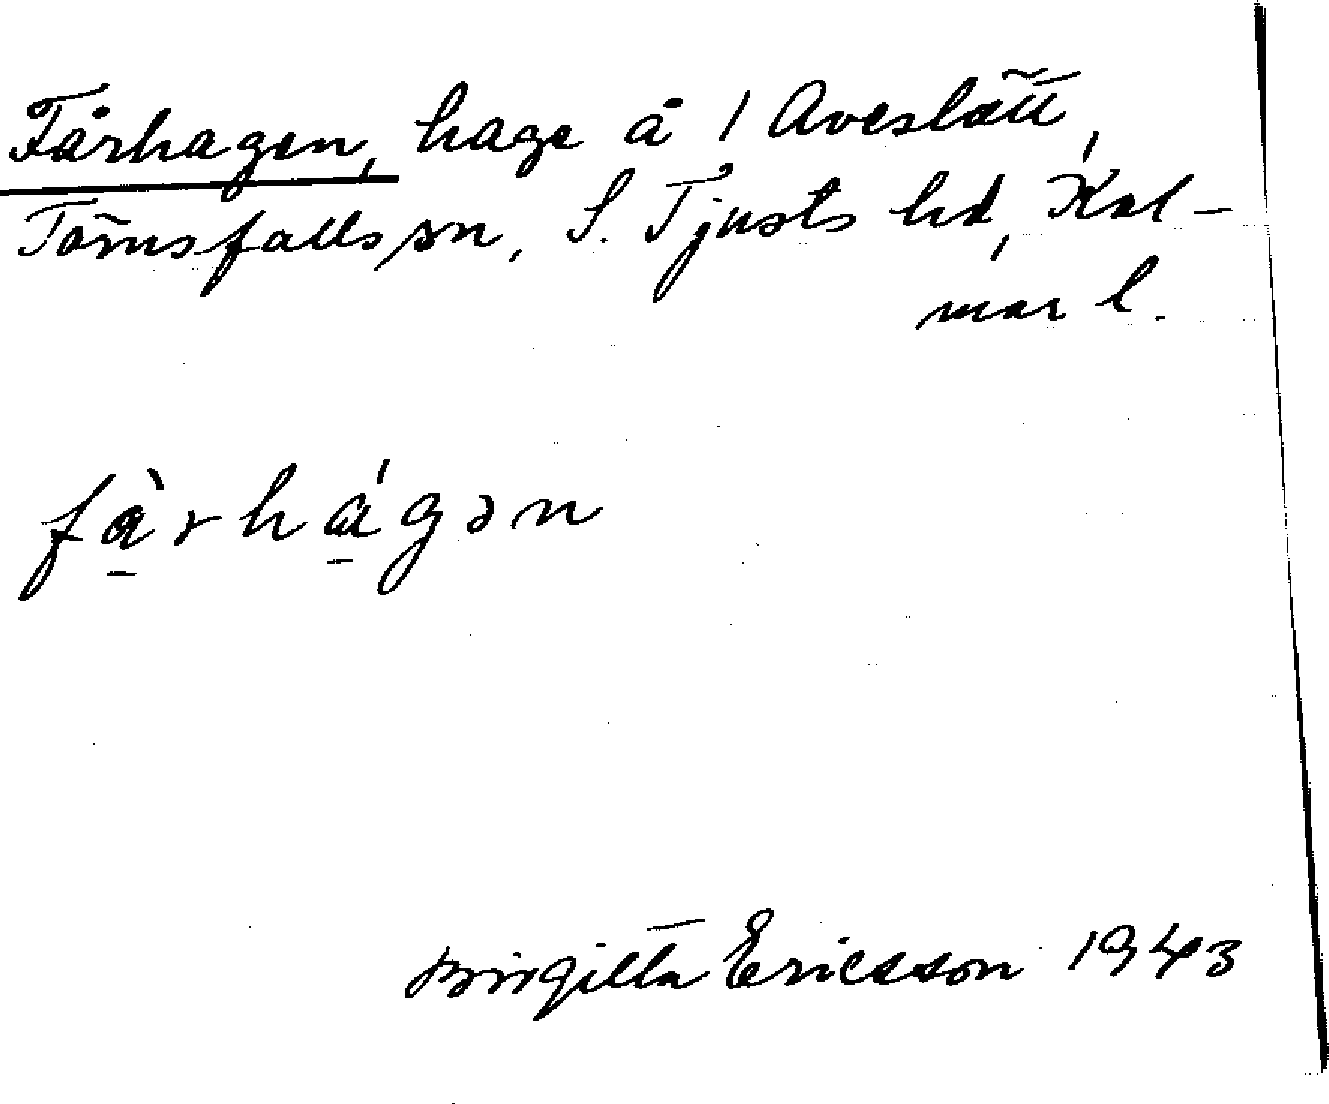 Fårhagen, hage å 1 Aveslätt,
Törnsfalls sn, S. Tjusts hd, Kal-
mar l.
fȧ̠̀rhȧ̠́gən
Birgitta Ericsson 1943